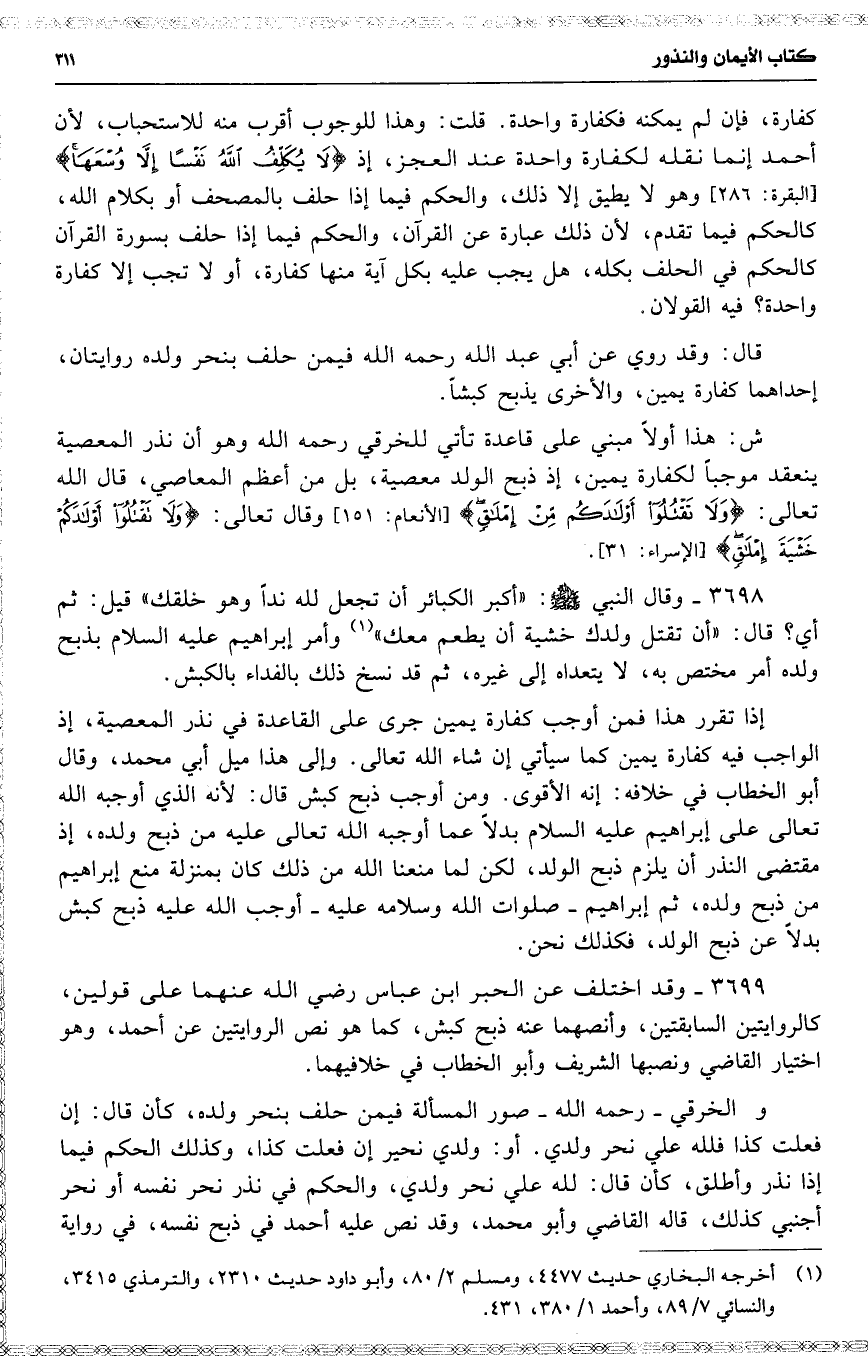 كتاب الأيمان والنذور ٣١١
كفارة، فإن لم يمكنه فكفارة واحدة. قلت: وهذا للوجوب أقرب منه للاستحباب، لأن
أحمد إنما نقله لكفارة واحدة عند العجز، إذ ﴿لَا يُكَلِّفُ ٱللَّهُ نَفْسًا إِلَّا وُسْعَهَا﴾
[البقرة: ٢٨٦] وهو لا يطيق إلا ذلك، والحكم فيما إذا حلف بالمصحف أو بكلام الله،
كالحكم فيما تقدم، لأن ذلك عبارة عن القرآن، والحكم فيما إذا حلف بسورة القرآن
كالحكم في الحلف بكله، هل يجب عليه بكل آية منها كفارة، أو لا تجب إلا كفارة
واحدة؟ فيه القولان.
قال: وقد روي عن أبي عبد الله رحمه الله فيمن حلف بنحر ولده روايتان،
إحداهما كفارة يمين، والأخرى يذبح كبشاً.
ش: هذا أولاً مبني على قاعدة تأتي للخرقي رحمه الله وهو أن نذر المعصية
ينعقد موجباً لكفارة يمين، إذ ذبح الولد معصية، بل من أعظم المعاصي، قال الله
تعالى: ﴿وَلَا تَقْتُلُوٓا۟ أَوْلَٰدَكُم مِّنْ إِمْلَٰقٍ﴾ [الأنعام: ١٥١] وقال تعالى: ﴿وَلَا تَقْتُلُوٓا۟ أَوْلَٰدَكُمْ
خَشْيَةَ إِمْلَٰقٍ﴾ [الإسراء: ٣١].
٣٦٩٨ ـ وقال النبي ﷺ: «أكبر الكبائر أن تجعل لله نداً وهو خلقك» قيل: ثم
أي؟ قال: «أن تقتل ولدك خشية أن يطعم معك»(١) وأمر إبراهيم عليه السلام بذبح
ولده أمر مختص به، لا يتعداه إلى غيره، ثم قد نسخ ذلك بالفداء بالكبش.
إذا تقرر هذا فمن أوجب كفارة يمين جرى على القاعدة في نذر المعصية، إذ
الواجب فيه كفارة يمين كما سيأتي إن شاء الله تعالى. وإلى هذا ميل أبي محمد، وقال
أبو الخطاب في خلافه: إنه الأقوى. ومن أوجب ذبح كبش قال: لأنه الذي أوجبه الله
تعالى على إبراهيم عليه السلام بدلاً عما أوجبه الله تعالى عليه من ذبح ولده، إذ
مقتضى النذر أن يلزم ذبح الولد، لكن لما منعنا الله من ذلك كان بمنزلة منع إبراهيم
من ذبح ولده، ثم إبراهيم ـ صلوات الله وسلامه عليه ـ أوجب الله عليه ذبح كبش
بدلاً عن ذبح الولد، فكذلك نحن.
٣٦٩٩ ـ وقد اختلف عن الحبر ابن عباس رضي الله عنهما على قولين،
كالروايتين السابقتين، وأنصهما عنه ذبح كبش، كما هو نص الروايتين عن أحمد، وهو
اختيار القاضي ونصبها الشريف وأبو الخطاب في خلافيهما.
و الخرقي ـ رحمه الله ـ صور المسألة فيمن حلف بنحر ولده، كأن قال: إن
فعلت كذا فلله علي نحر ولدي. أو: ولدي نحير إن فعلت كذا، وكذلك الحكم فيما
إذا نذر وأطلق، كأن قال: لله علي نحر ولدي، والحكم في نذر نحر نفسه أو نحر
أجنبي كذلك، قاله القاضي وأبو محمد، وقد نص عليه أحمد في ذبح نفسه، في رواية
(١) أخرجه البخاري حديث ٤٤٧٧، ومسلم ٢/ ٨٠، وأبو داود حديث ٢٣١٠، والترمذي ٣٤١٥،
والنسائي ٧/ ٨٩، وأحمد ١/ ٣٨٠، ٤٣١.